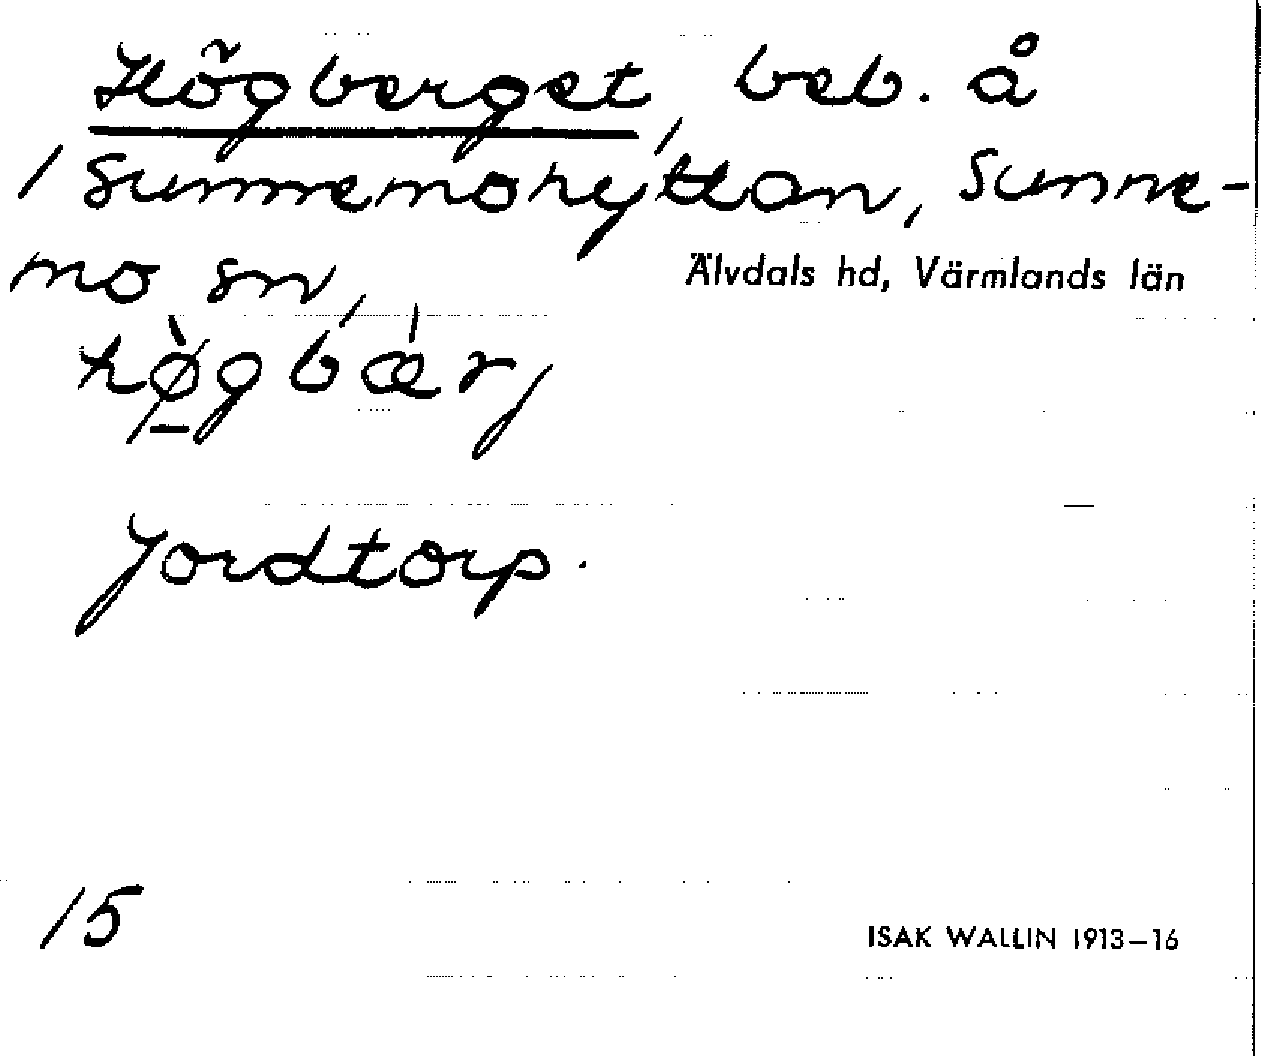 Högberget, beb. å
1 Sunnemohyttan, Sunne-
mo sn,
Älvdals hd, Värmlands län
hø̱̀gbæ̍rj
Jordtorp.
15
ISAK WALLIN 1913–16